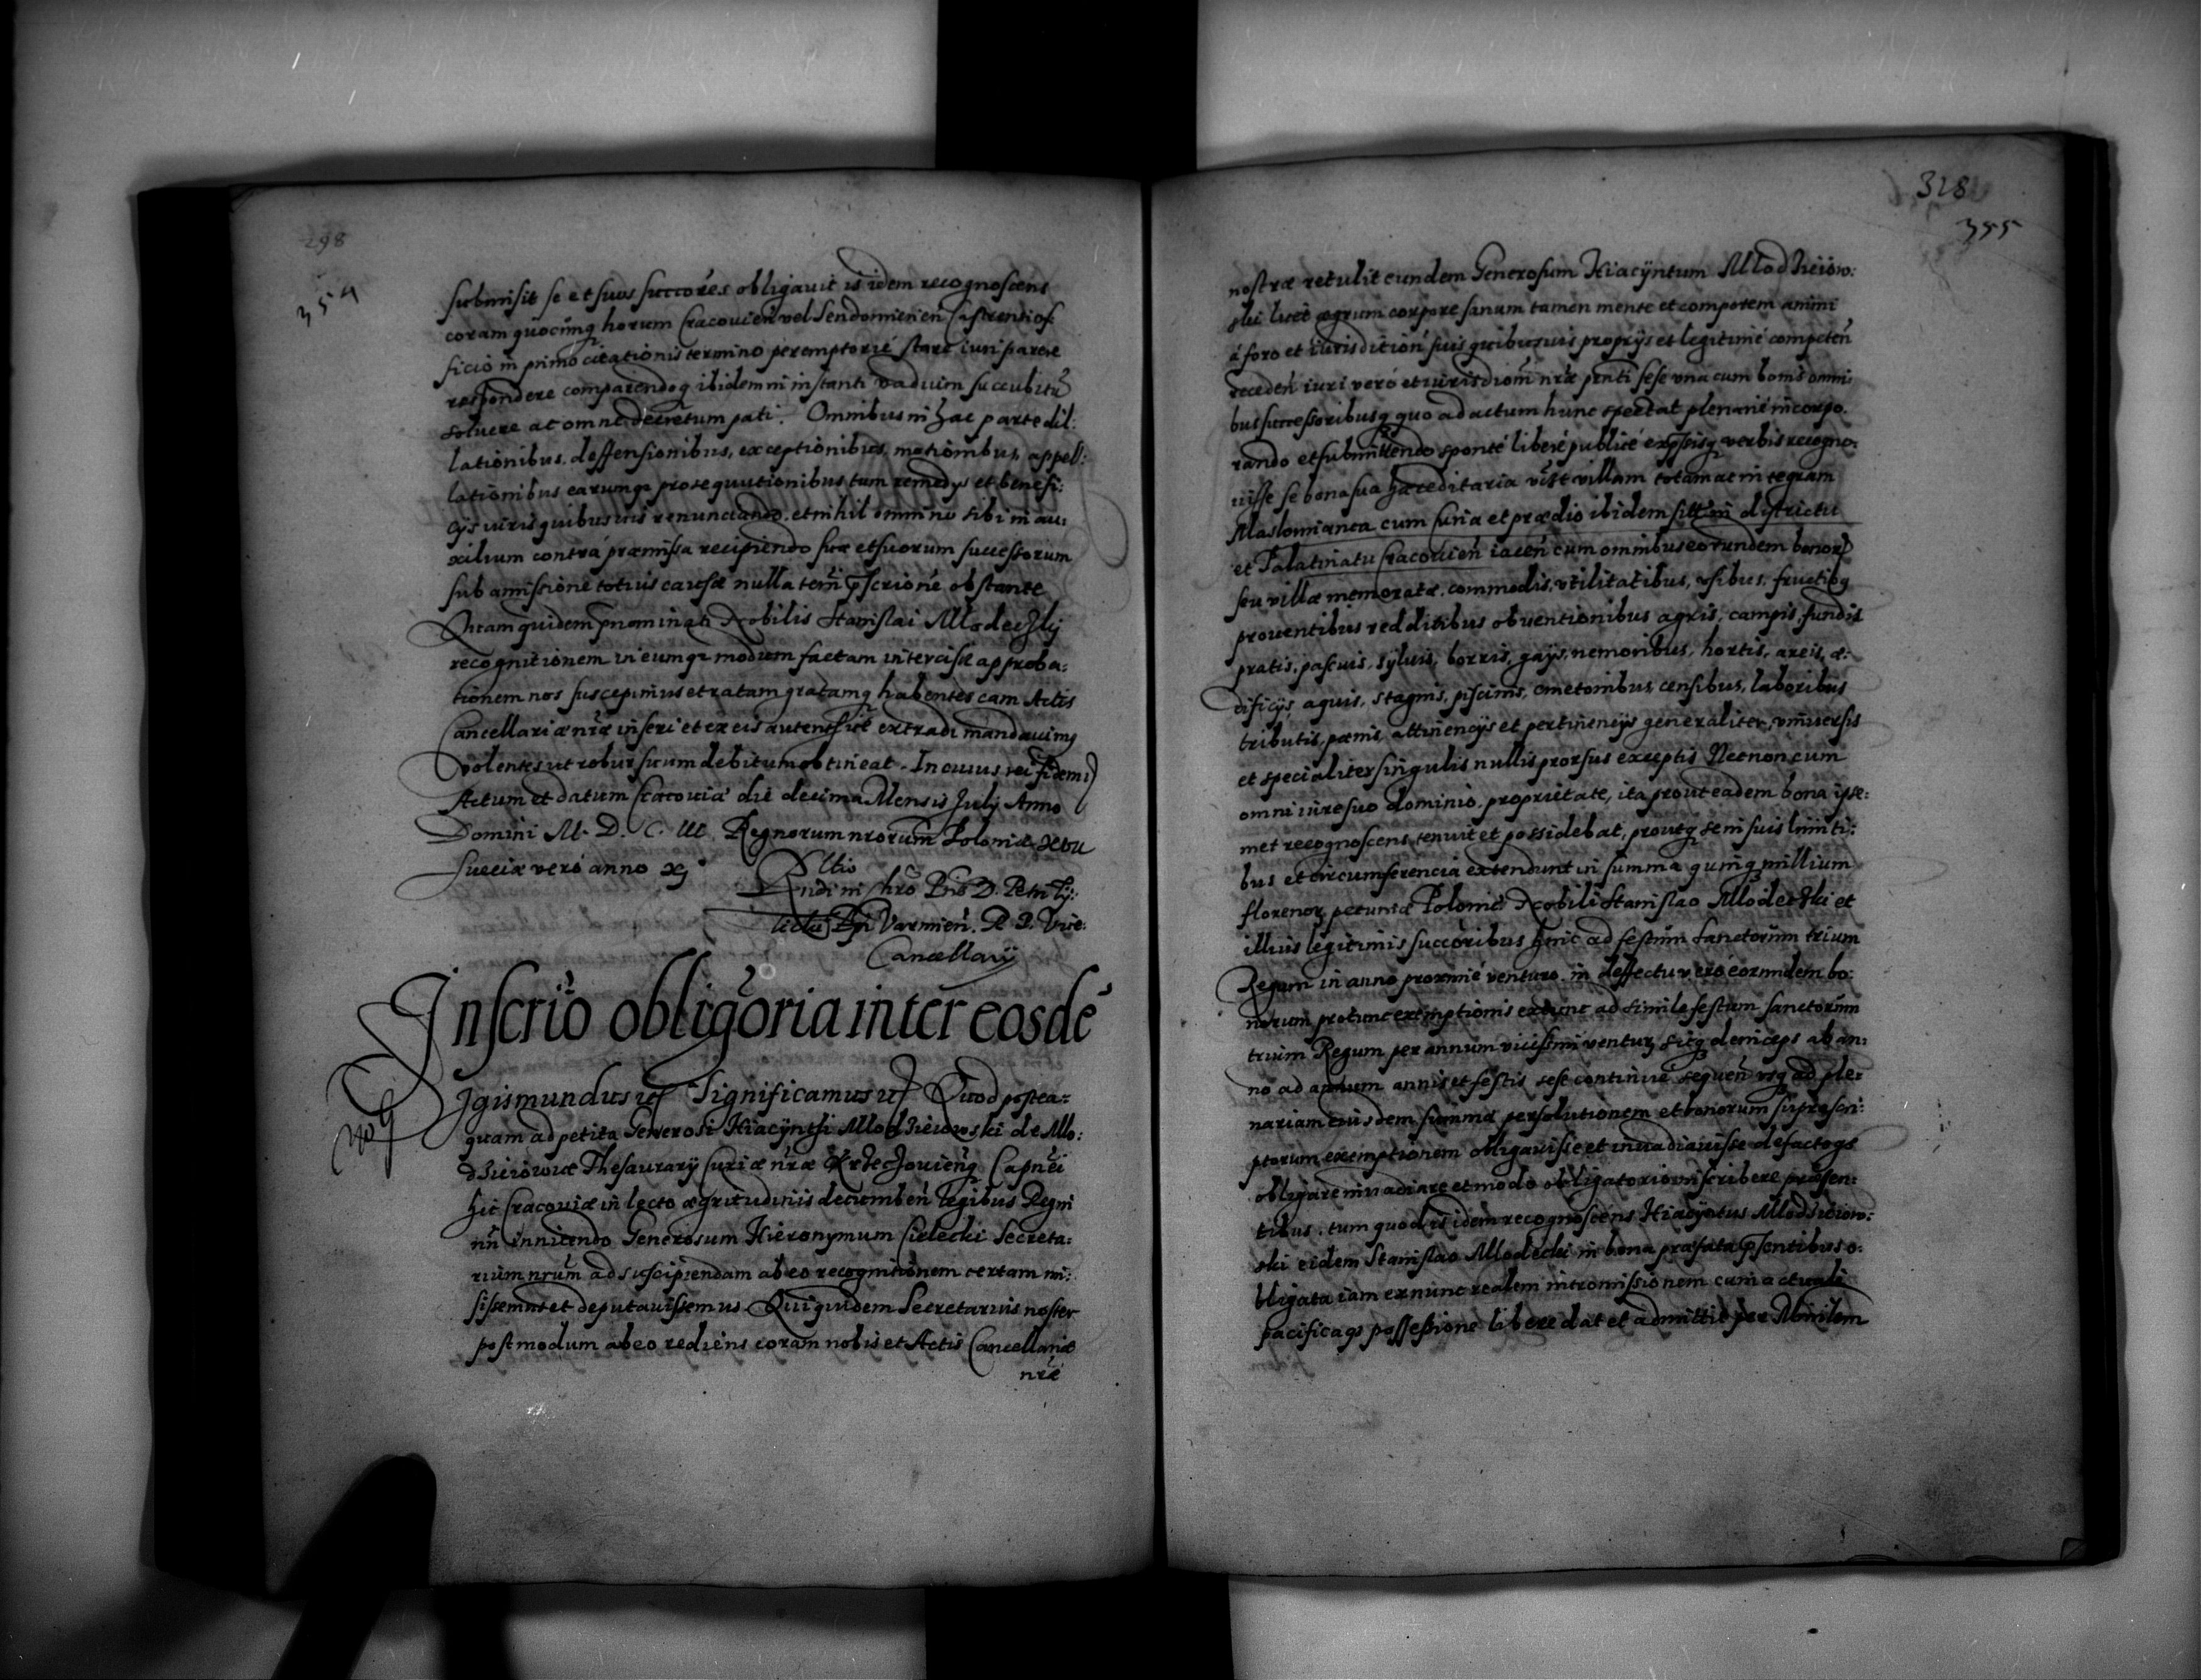 298
354
submisit se et suos succores obligauit is idem recognoscens
coram quocunq horum Cracouien vel Sendomirien Castren of:
ficio in primo citationis termino peremptorié stare iuri parere
respondere comparendoq ibidem in instanti vadium succubitu
soluere ac omne decretum pati. Omnibus in hac parte dil:
lationibus, deffensionibus, exceptionibus, motionibus, appel:
lationibus earumq prosequutionibus tum remedijs et benefi:
cijs iuris quibusuis renunciando, et nihil omnino sibi in au:
xilium contrá præmissa recipiendo suæ et suorum successorum
sub amissione totius causæ nulla terri pscrione obstante
Quam quidem pnominati Nobilis Stanislai Mlodeczki
recognitionem in eumq modum factam intercisæ approba:
tionem nos suscepimus et ratam gratamq habentes eam Actis
Cancellariæ nræ inseri et ex eis autentice extradi mandauimq
volentes ut robur suum debitum obtineat. In cuius rei fidem
Actum et datum Cracouiæ die decima Mensis Julij Anno
Domini M. D. C. III Regnorum nrorum Poloniæ xvi
Sueciæ veró anno xj
Rltio
Rndi in Chro Pris D. Petri Ty:
licki Epi Varmien. R. P. Vice:
Cancellarij
Inscrio obligoria inter eosdé
Sigismundus Significamus Quod postea:
quam ad petita Generosi Hiacynthi Mlodzieiowski de Mlo:
dzieiowice Thesaurarij Curiæ nræ Krzeczouienq Capnei
hic Cracouiæ in lecto ægritudinis decumben legibus Regni
nri innitendo Generosum Hieronymum Cielecki Secreta:
rium nrum ad suscipiendam ab eo recognitionem certam mi:
sissemus et deputauissemus. Qui quidem Secretarius noster
postmodum ab eo rediens coram nobis et Actis Cancellariæ
nræ
328
355
nostræ retulit eundem Generosum Hiacyntum Mlodzieiow:
ski licet ægrum corpore sanum tamen mente et compotem animi
á foro et iurisdition suis quibusuis proprijs et legitimé competen
receden iuri veró et iurisdiom nræ pnti sese vna cum bonis omni
bus successoribusq quo ad actum hunc spectat plenarié incorpo.
rando et submittendo sponté liberé publicé expssisq verbis recogno:
uisse se bona sua hæreditaria vizt villam totam ac integram
Maslomianca cum Curia et prædio ibidem sitt in districtu
et Palatinatu Cracouien iacen cum omnibus eorundem bonor
seu villæ memoratæ, commodis, vtilitatibus, vsibus, fructibq
prouentibus redditibus obuentionibus agris, campis, fundis
pratis, pascuis, syluis, borris, gays, nemoribus, hortis, areis, æ:
dificijs, aquis, stagnis, piscinis, cmetonibus, censibus, laboribus
tributis, pœnis, attinencijs et pertinencijs generaliter, vniuersis
et specialiter singulis nullis prorsus exceptis Necnon cum
omni iure suo dominio, proprietate, ita prout eadem bona ipse:
met recognoscens tenuit et possidebat, proutq se in suis limiti:
bus et circumferencia extendunt in summa quinq millium
florenor pecuniæ Polonic Nobili Stanislao Mlodeczki et
illius legitimis succoribus hinc ad festum Sanctorum trium
Regum in anno proximé venturo. in deffectu veró eorundem bo:
norum protunc exemptionis extunc ad simile festum sanctorum
trium Regum per annum vicissim ventur sicq deinceps ab an:
no ad annum annis et festis sese continué sequen vsq ad ple:
nariam eiusdem summæ persolutionem et bonorum suprascri:
ptorum exemptionem obligauisse et inuadiauisse de factoq
obligare inuadiare et modo obligatorio inscribere præsen:
tibus. tum quod is idem recognoscens Hiacyntus Mlodzieiow:
ski eidem Stanislao Mlodecki in bona præfata psentibus o:
bligata iam exnunc realem intromissionem cum actuali
pacificaq possessione libere dat et admittit per Ministerialem